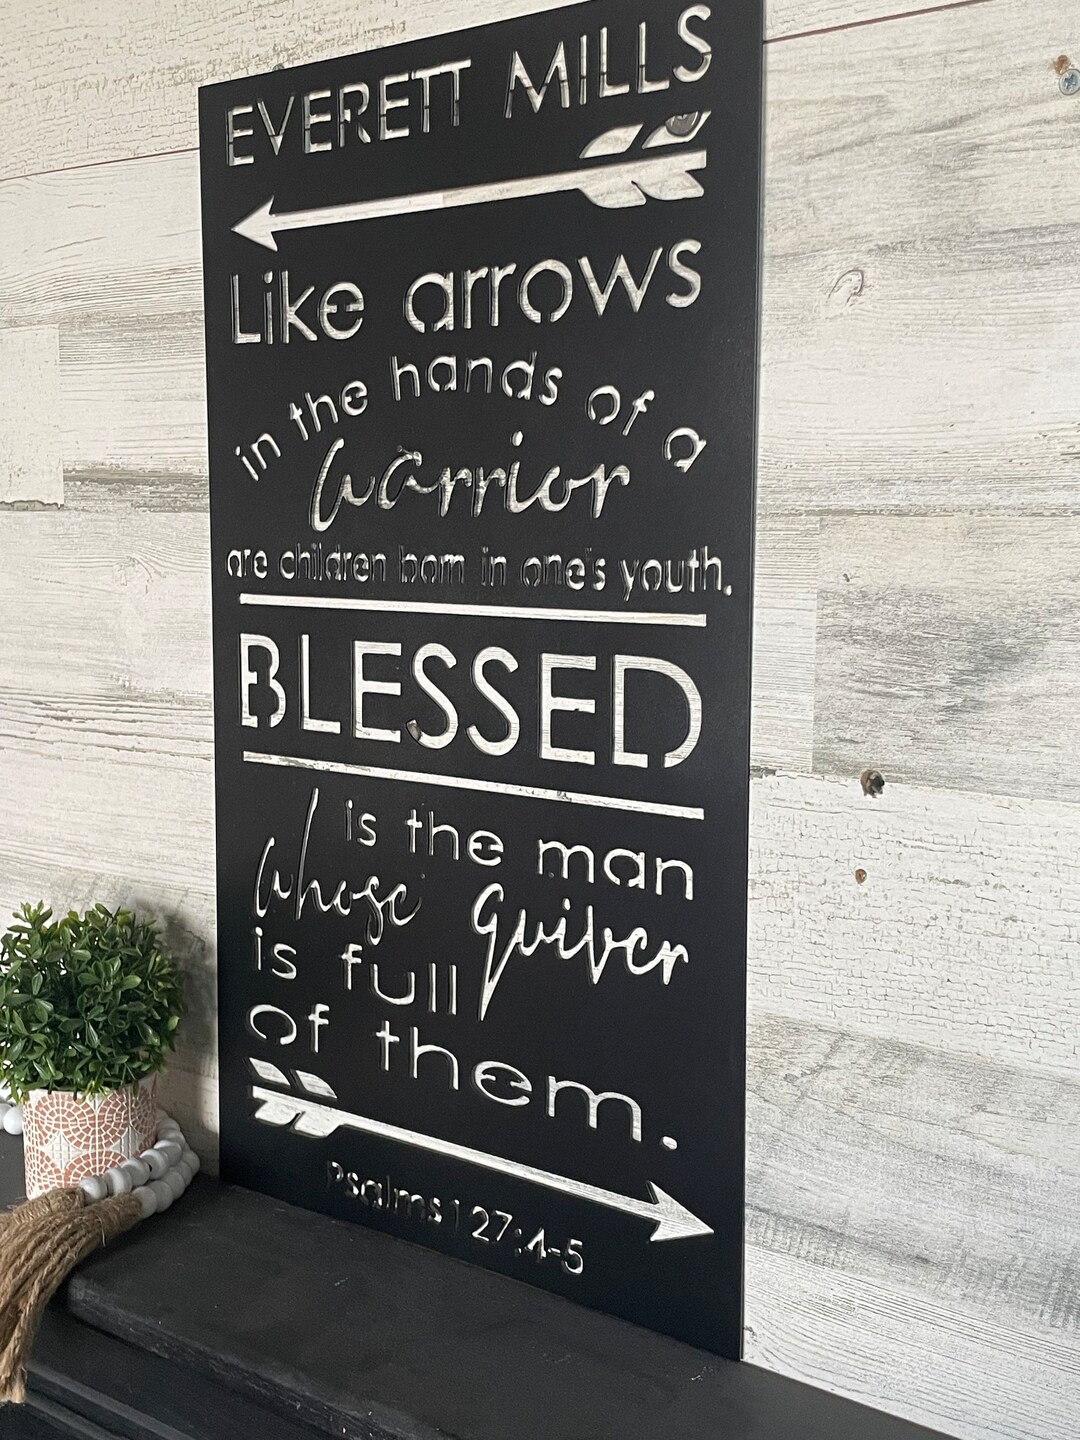 EVERETT MILLS
Like arrows
in the hands of a
warrior
are children born in one's youth.
BLESSED
is the man
whose quiver
is full
of them.
Psalms 127:4-5